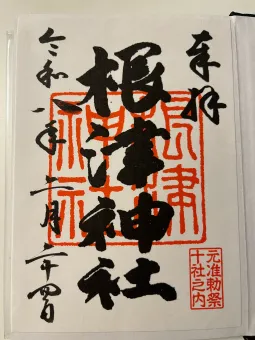 奉拝
根津神社
令和八年二月二十四日
根津神社
元准勅祭
十社之内